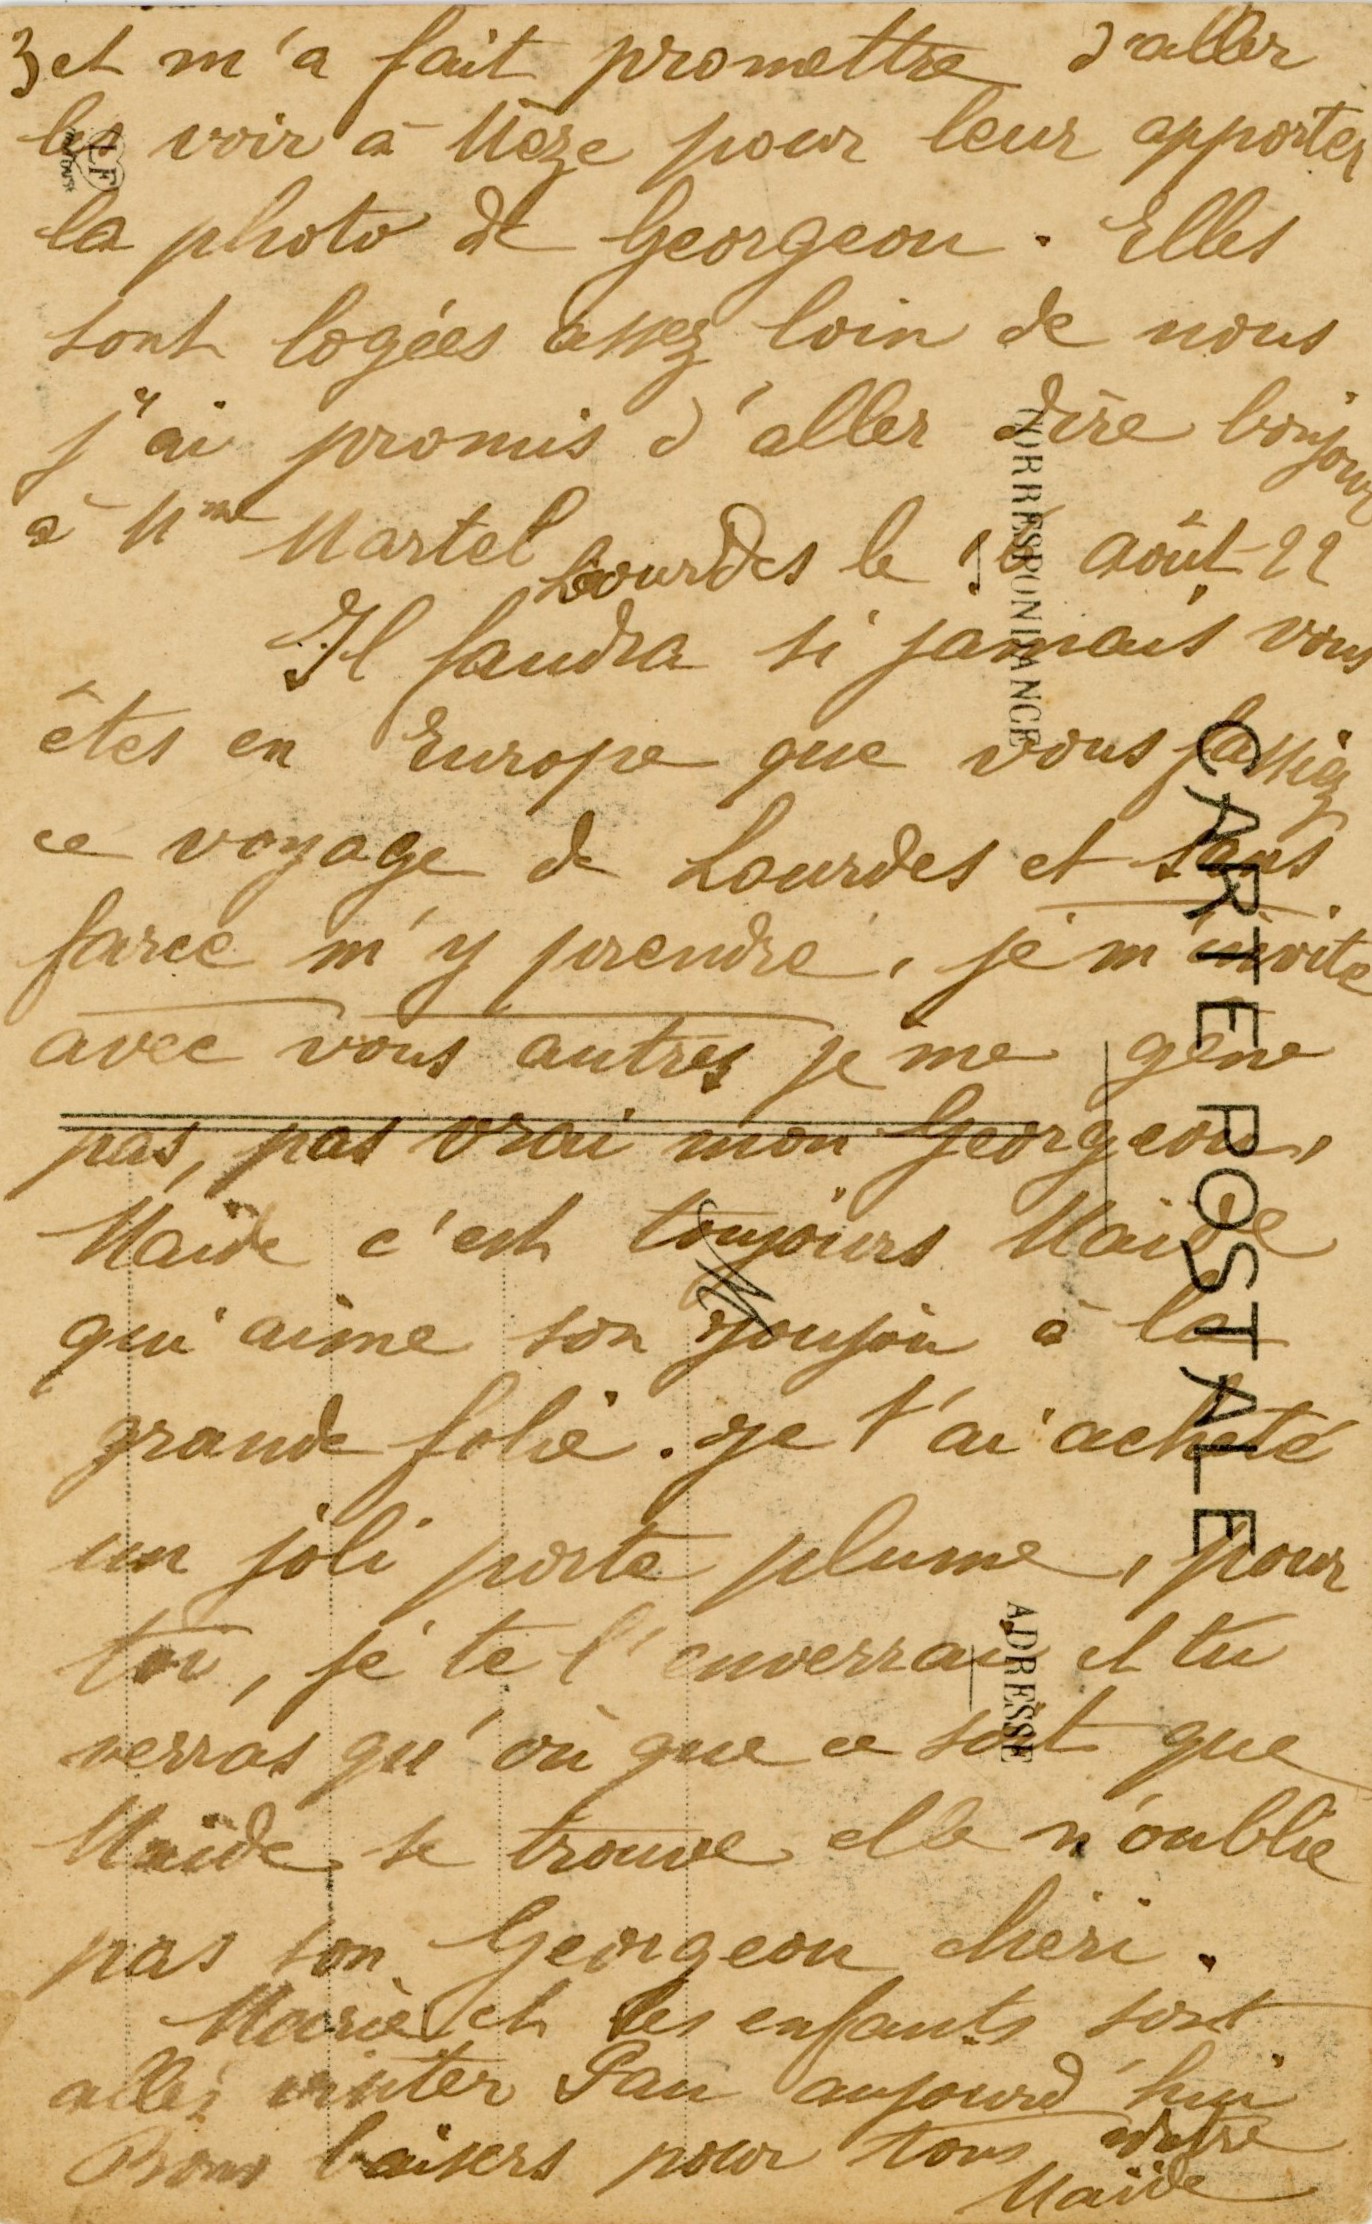 3 et m'a fait promettre d'aller
les voir à Mèze pour leur apporter
la photo de Georgeou. Elles
sont logées assez loin de nous
j'ai promis d'aller dire bonjour
à Mme Martel
Lourdes le 16 août 22
Il faudra si jamais vous
êtes en Europe que vous fassiez
ce voyage de Lourdes et sans
farce m'y prendre, je m'invite
avec vous autres je me gêne
pas, pas vrai mon Georgeou,
Maïde c'est toujours Maïde
qui aime son joujou à la
grande folie. Je t'ai acheté
un joli porte plume, pour
toi, je te l'enverrai et tu
verras qu'où que ce soit que
Maïde se trouve elle n'oublie
pas son Georgeou chéri.
Marie et les enfants sont
allés visiter Pau aujourd'hui
Bons baisers pour tous votre
Maïde
CARTE POSTALE
CORRESPONDANCE
ADRESSE